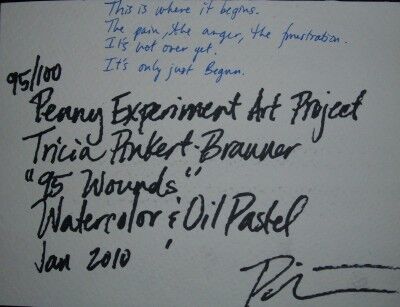 This is where it begins.
The pain, the anger, the frustration.
It's not over yet.
It's only just Begun.
95/100
Penny Experiment Art Project
Tricia Pinkert-Branner
"95 Wounds"
Watercolor & Oil Pastel
Jan 2010